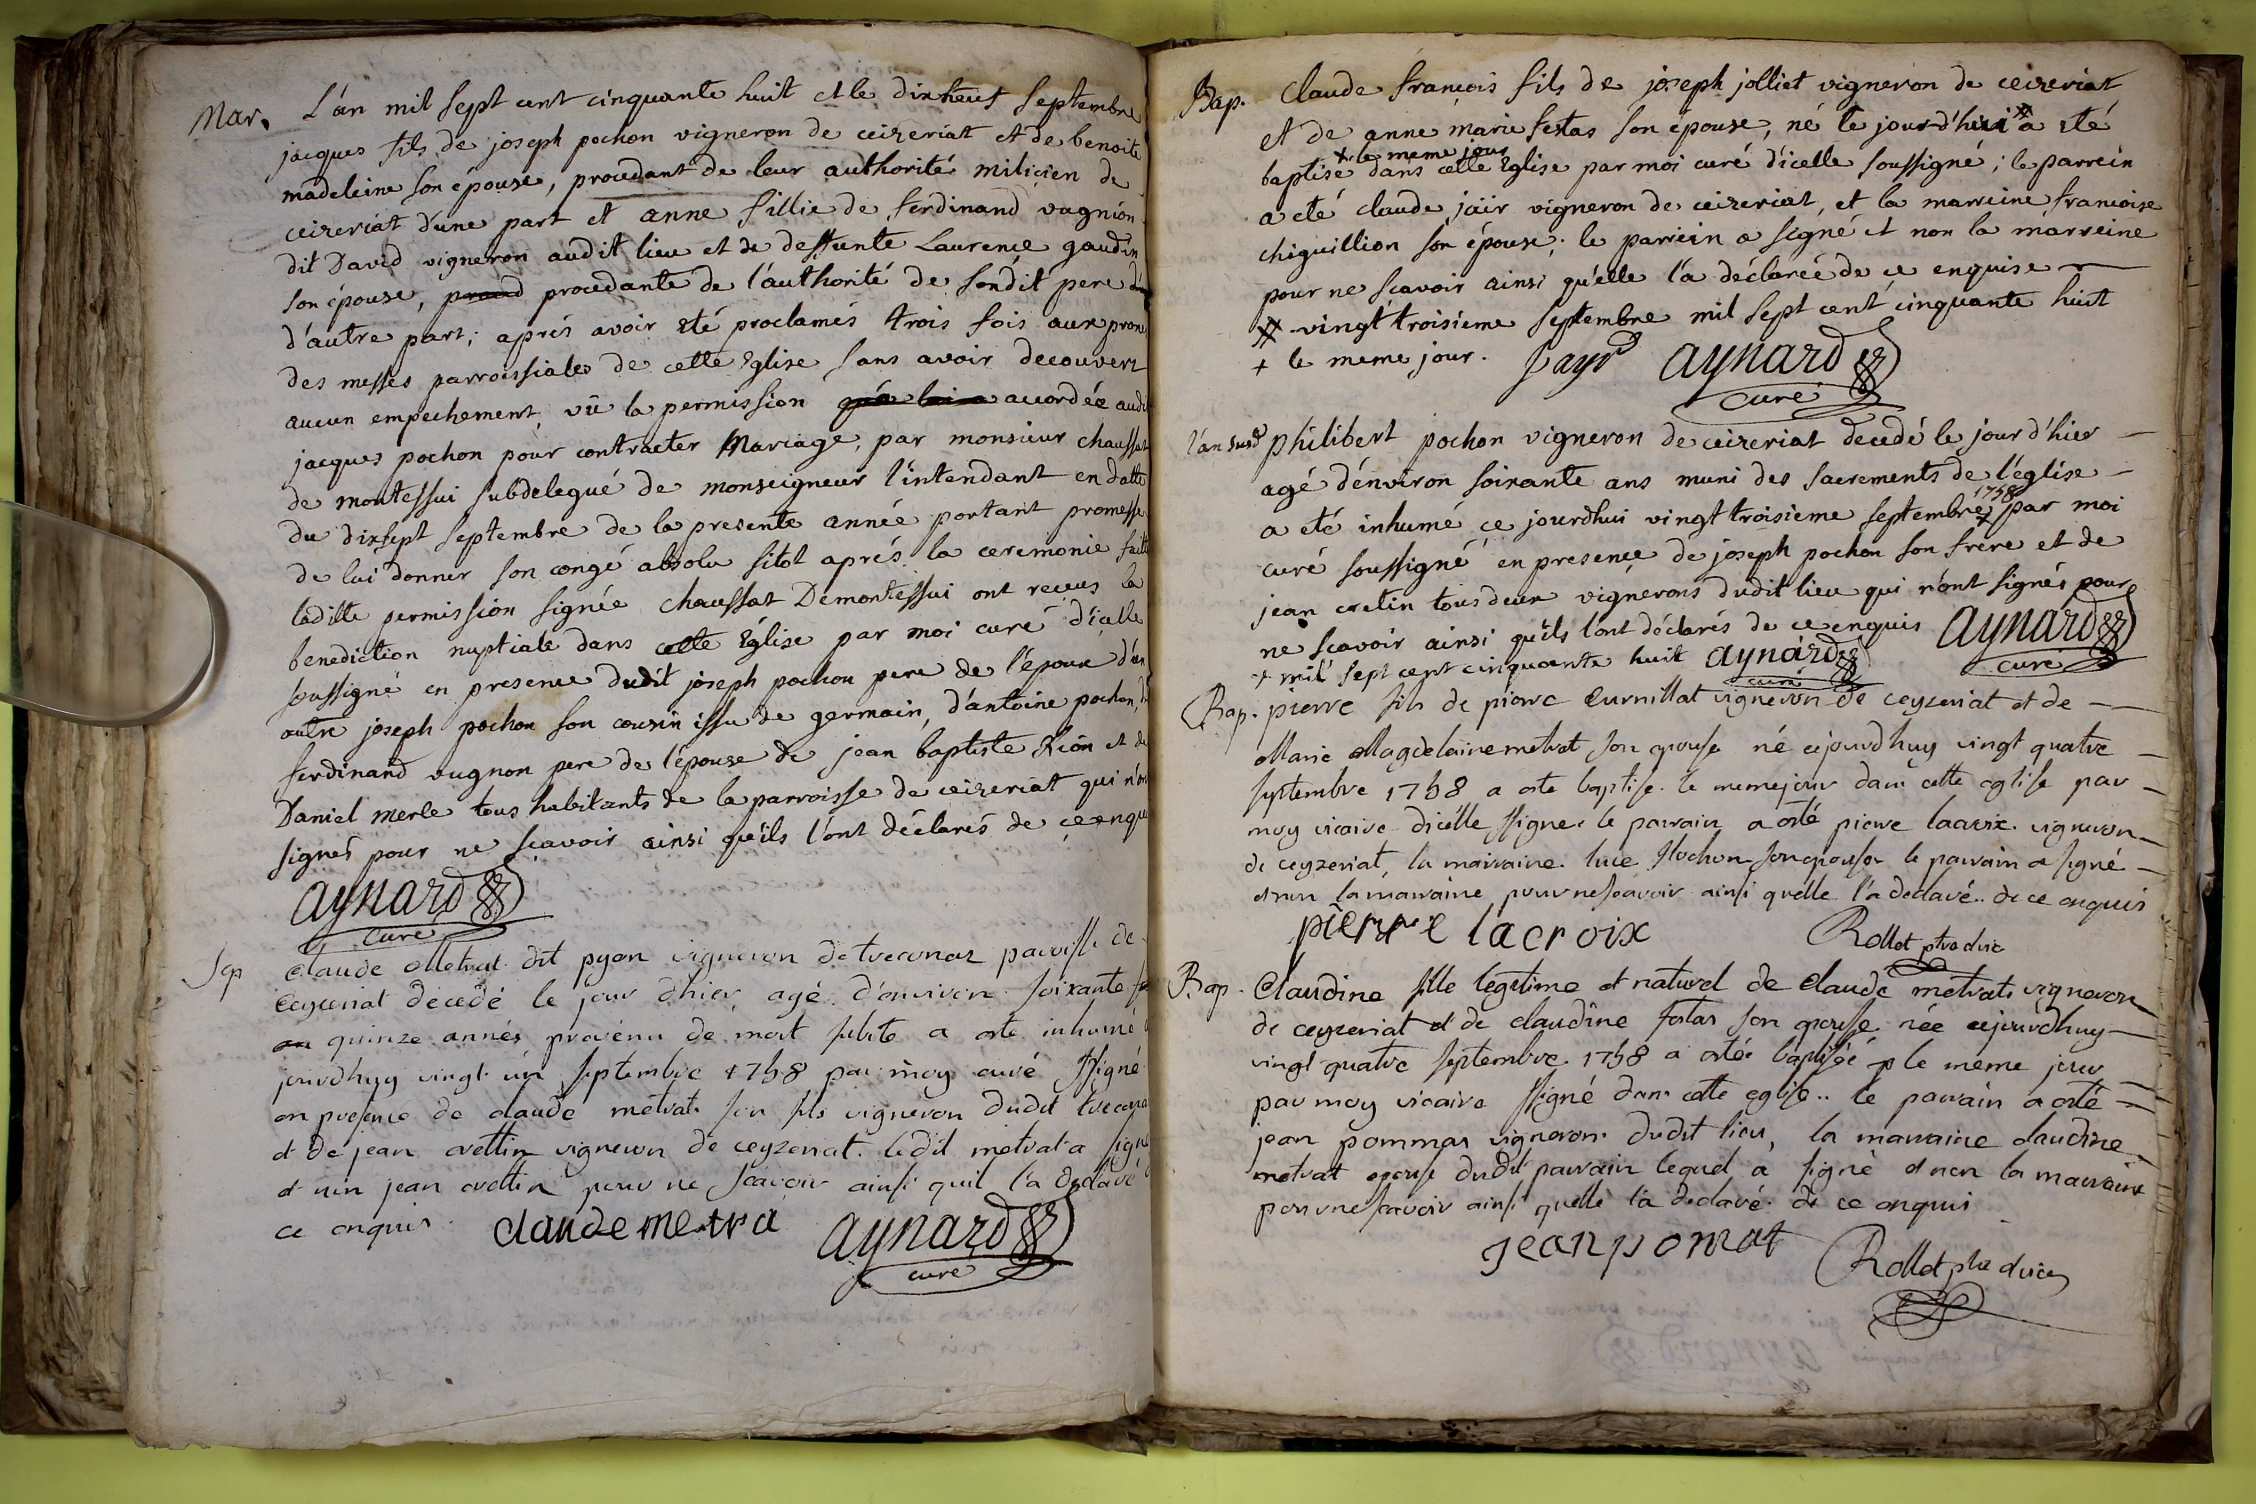 Mar. L'an mil sept cent cinquante huit et le dixneuf septembre
jacques fils de joseph pochon vigneron de ceizeriat et de benoite
madeleine son épouse, procedant de leur authorité milicien de
ceizeriat d'une part et anne fillie de ferdinand vugnion
dit David vigneron audit lieu et de deffunte Laurence gaudin
son épouse, procedante de l'authorité de sondit pere
d'autre part; aprés avoir eté proclamés trois fois aux prone
des messes parroissiales de cette Eglise sans avoir decouvert
aucun empechement, vû la permission accordée audit
jacques pochon pour contracter Mariage, par monsieur chaussat
de montessui subdelegué de monseigneur l'intendant en datte
du dixsept septembre de la presente année portant promesse
de lui donner son congé absolu sitot aprés la ceremonie faitte
laditte permission signée Chaussat Demontessui ont recus la
benediction nuptiale dans cette Église par moi curé d'icelle
soussigné en presence dudit joseph pochon pere de l'époux d'un
autre joseph pochon son cousin issu de germain, d'antoine pochon, de
ferdinand vugnon pere de l'épouse de jean baptiste et de
Daniel merle tous habitants de la parroisse de ceizeriat qui n'ont
signés pour ne scavoir ainsi qu'ils l'ont déclarés de ce enquis
aynard
curé
Sep Claude Metrat dit pyon vigneron de treconas paroisse de
Ceyzeriat décedé le jour d'hier agé d'environ soixante
quinze années provenu de mort subite a eté inhumé
jourdhuy vingt un septembre 1758 par moy curé ssigné
en presence de claude metrat son fils vigneron dudit trecona
et de jean crettin vigneron de ceyzeriat. ledit metrat a signé
et non jean crettin pour ne scavoir ainsi quil l'a declaré
ce enquis. claude metra aynard
curé
Bap. Claude francois fils de joseph jolliet vigneron de ceizeriat
et de anne marie festas son épouse, né le jourd'hui # a eté
+ le meme jour
baptisé dans cette Eglise par moi curé d'icelle soussigné; le parrein
a eté claude jaïr vigneron de ceizeriat, et la marreine francoise
chiguillion son épouse; le parrein a signé et non la marreine
pour ne scavoir ainsi qu'elle l'a déclaréé de ce enquise
# vingt troisieme septembre mil sept cent cinquante huit
+ le meme jour. aynard
curé
l'an susd philibert pochon vigneron de ceizeriat decedé le jour d'hier
agé d'environ soixante ans muni des sacrements de l'église
1758
a eté inhumé ce jourdhui vingt troisieme septembre + par moi
curé soussigné en presence de joseph pochon son frere et de
jean cretin tous deux vignerons dudit lieu qui n'ont signés pour
ne scavoir ainsi qu'ils l'ont déclarés de ce enquis aynard
+ mil sept cent cinquante huit aynard curé
curé
Bap. pierre fils de pierre Curnillat vigneron de ceyzeriat et de
Marie Magdelaine metrat son epouse né cejourdhuy vingt quatre
septembre 1758 a ete baptise le memejour dans cette eglise par
moy vicaire dicelle ssigne. le parrain a eté pierre lacroix vigneron
de ceyzeriat, la marraine luce pochon son epouse le parrain a signé
et non la marraine pour ne scavoir ainsi quelle l'a declaré de ce enquis
pierre lacroix Rollet ptre et vic
Bap. Claudine fille legitime et naturel de Claude metrat vigneron
de ceyzeriat et de claudine festas son epouse née cejourdhuy
vingt quatre septembre 1758 a eteé baptiséé le meme jour
par moy vicaire ssigné dans cette eglise.. le parrain a eté
jean pommas vigneron dudit lieu, la marraine claudine
metrat epouse dudit parrain lequel a signé et non la marraine
pour ne scavoir ainsi quelle l'a declaré de ce enquis
jean pomat Rollet ptre et vic